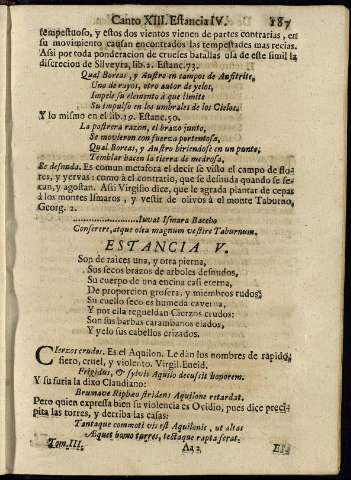 Canto XIII. Estancia IV. 187
tempestuoso, y estos dos vientos vienen de partes contrarias, en
su movimiento causan encontrados las tempestades mas recias.
Assi por toda ponderacion de crueles batallas usa de este simil la
discrecion de Silveyra, lib. 2. Estanc. 73.
Qual Boreas, y Austro en campos de Anfitrite,
Uno de rayos, otro autor de yelos,
Impele su elemento à que limite
Su impulso en los umbrales de los Cielos.
Y lo mismo en el lib. 19. Estanc. 50.
La postrera razon, el brazo junto,
Se movieron con fuerza portentosa,
Qual Boreas, y Austro hiriendose en un punto,
Temblar hacen la tierra de medrosa.
Se desnuda. Es comun metafora el decir se visto el campo de flo-
res, y yervas: como al contrario, que se desnuda quando se se-
can, y agostan. Assi Virgilio dice, que le agrada plantar de cepas
à los montes Ismaros, y vestir de olivos à el monte Taburno,
Georg. 2.
.......................Iuvat Ismara Baccho
Conserere, atque olea magnum vestire Taburnum.
ESTANCIA V.
Son de raices una, y otra pierna,
Sus secos brazos de arboles desnudos,
Su cuerpo de una encina casi eterna,
De proporcion grosera, y miembros rudos;
Su cuello seco es humeda caverna,
Y por ella regueldan Cierzos crudos:
Son sus barbas carambanos elados,
Y yelo sus cabellos erizados.
Cierzos crudos. Es el Aquilon. Le dàn los nombres de rapido,
fiero, cruel, y violento. Virgil. Eneid.
Frigidus, & sylvis Aquilo decussit honorem.
Y su furia la dixo Claudiano:
Brumave Riphæo stridens Aquilone retardat.
Pero quien expressa bien su violencia es Ovidio, pues dice preci-
pita las torres, y derriba las casas:
Tantaque commoti vis est Aquilonis, ut altas
Æquet humo turres, tectaque rapta ferat.
Tom. III. Aa 2 Est